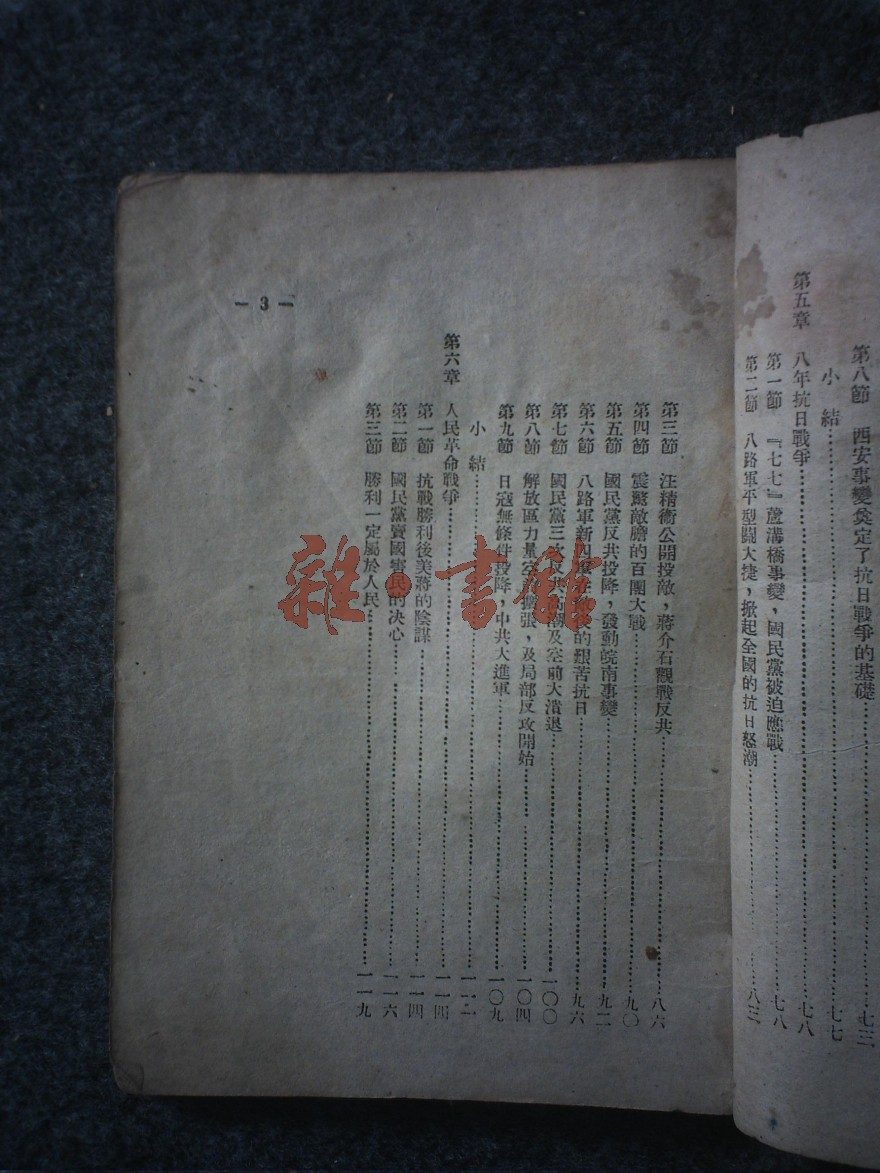 第八節 西安事變奠定了抗日戰爭的基礎……七三
小結……七七
第五章 八年抗日戰爭……七八
第一節 『七七』蘆溝橋事變，國民黨被迫應戰……七八
第二節 八路軍平型關大捷，掀起全國的抗日怒潮……八三
第三節 汪精衛公開投敵，蔣介石觀戰反共……八六
第四節 震驚敵膽的百團大戰……九〇
第五節 國民黨反共投降，發動皖南事變……九二
第六節 八路軍新四軍在敵後的艱苦抗日……九六
第七節 國民黨三次反共高潮及空前大潰退……一〇〇
第八節 解放區力量空前擴張，及局部反攻開始……一〇四
第九節 日寇無條件投降，中共大進軍……一〇九
小結……一一二
第六章 人民革命戰爭……一一四
第一節 抗戰勝利後美蔣的陰謀……一一四
第二節 國民黨賣國害民的决心……一一六
第三節 勝利一定屬於人民……一一九
— 3 —
雜·書館